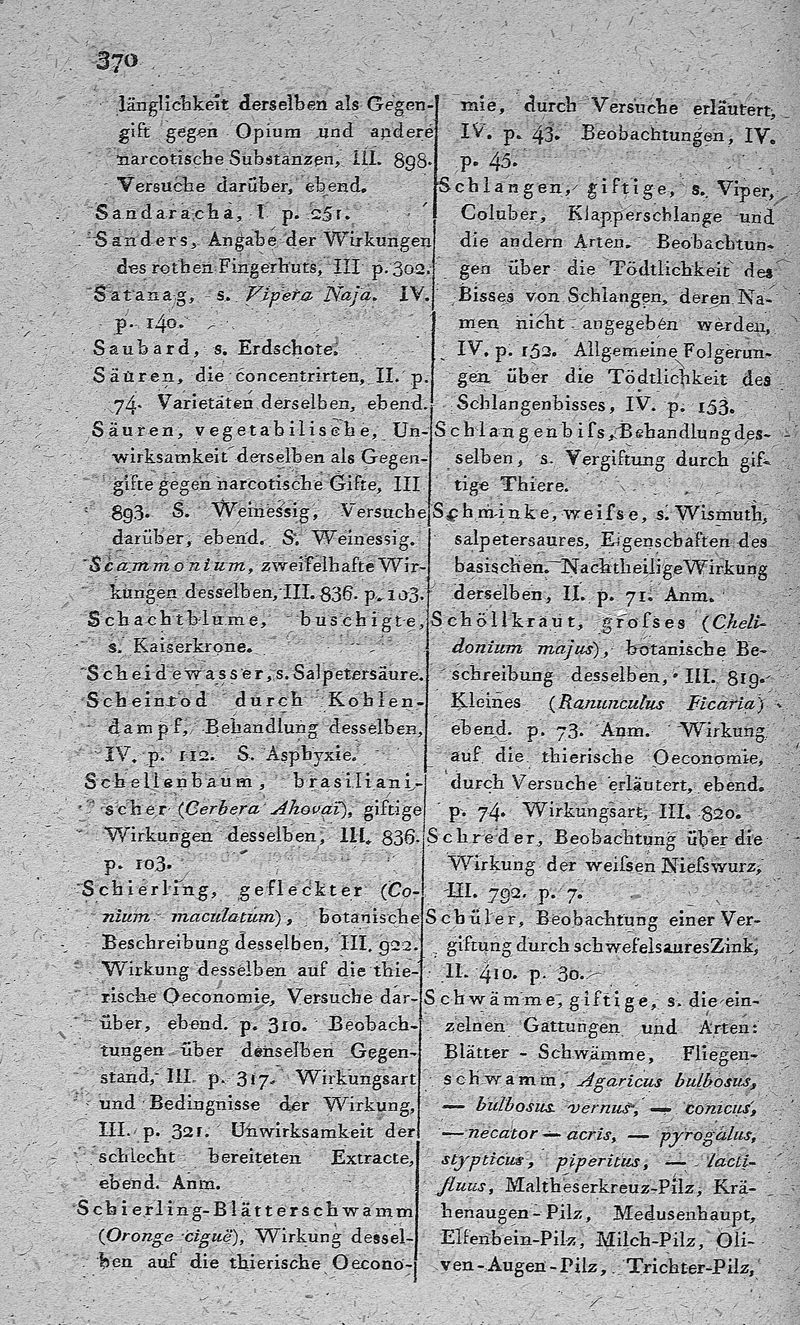 370
länglichkeit derselben als Gegen-
gift gegen Opium und andere
narcotische Substanzen, III. 898.
Versuche darüber, ebend.
Sandaracha, I p. 251.
Sanders, Angabe der Wirkungen
des rothen Fingerhuts, III p. 302.
Satanag, s. Vipera Naja. IV.
p. 140.
Saubard, s. Erdschote.
Säuren, die concentrirten, II. p.
74. Varietäten derselben, ebend.
Säuren, vegetabilische, Un-
wirksamkeit derselben als Gegen-
gifte gegen narcotische Gifte, III
893. S. Weinessig, Versuche
darüber, ebend. S. Weinessig.
Scammonium, zweifelhafte Wir-
kungen desselben, III. 836. p. 103.
Schachtblume, buschigte,
s. Kaiserkrone.
Scheidewasser, s. Salpetersäure.
Scheintod durch Kohlen-
dampf, Behandlung desselben,
IV. p. 112. S. Asphyxie.
Schellenbaum, brasiliani-
scher (Cerbera Ahovai), giftige
Wirkungen desselben, III. 836.
p. 103.
Schierling, gefleckter (Co-
nium maculatum), botanische
Beschreibung desselben, III. 922.
Wirkung desselben auf die thie-
rische Oeconomie, Versuche dar-
über, ebend. p. 310. Beobach-
tungen über denselben Gegen-
stand, III. p. 317. Wirkungsart
und Bedingnisse der Wirkung,
III. p. 321. Unwirksamkeit der
schlecht bereiteten Extracte,
ebend. Anm.
Schierling-Blätterschwamm
(Oronge ciguë), Wirkung dessel-
ben auf die thierische Oecono-
mie, durch Versuche erläutert,
IV. p. 43. Beobachtungen, IV.
p. 45.
Schlangen, giftige, s. Viper,
Coluber, Klapperschlange und
die andern Arten. Beobachtun-
gen über die Tödtlichkeit des
Bisses von Schlangen, deren Na-
men nicht angegeben werden,
IV. p. 152. Allgemeine Folgerun-
gen über die Tödtlichkeit des
Schlangenbisses, IV. p. 153.
Schlangenbiſs, Behandlung des-
selben, s. Vergiftung durch gif-
tige Thiere.
Schminke, weiſse, s. Wismuth,
salpetersaures, Eigenschaften des
basischen. Nachtheilige Wirkung
derselben, II. p. 71. Anm.
Schöllkraut, groſses (Cheli-
donium majus), botanische Be-
schreibung desselben, III. 819.
Kleines (Ranunculus Ficaria)
ebend. p. 73. Anm. Wirkung
auf die thierische Oeconomie,
durch Versuche erläutert, ebend.
p. 74. Wirkungsart, III. 820.
Schreder, Beobachtung über die
Wirkung der weiſsen Nieſswurz,
III. 792. p. 7.
Schüler, Beobachtung einer Ver-
giftung durch schwefelsaures Zink,
II. 410. p. 30.
Schwämme, giftige, s. die ein-
zelnen Gattungen und Arten:
Blätter-Schwämme, Fliegen-
schwamm, Agaricus bulbosus,
— bulbosus vernus, — conicus,
— necator — acris, — pyrogalus,
stypticus, piperitus, — lacti-
fluus, Maltheserkreuz-Pilz, Krä-
henaugen-Pilz, Medusenhaupt,
Elfenbein-Pilz, Milch-Pilz, Oli-
ven-Augen-Pilz, Trichter-Pilz,